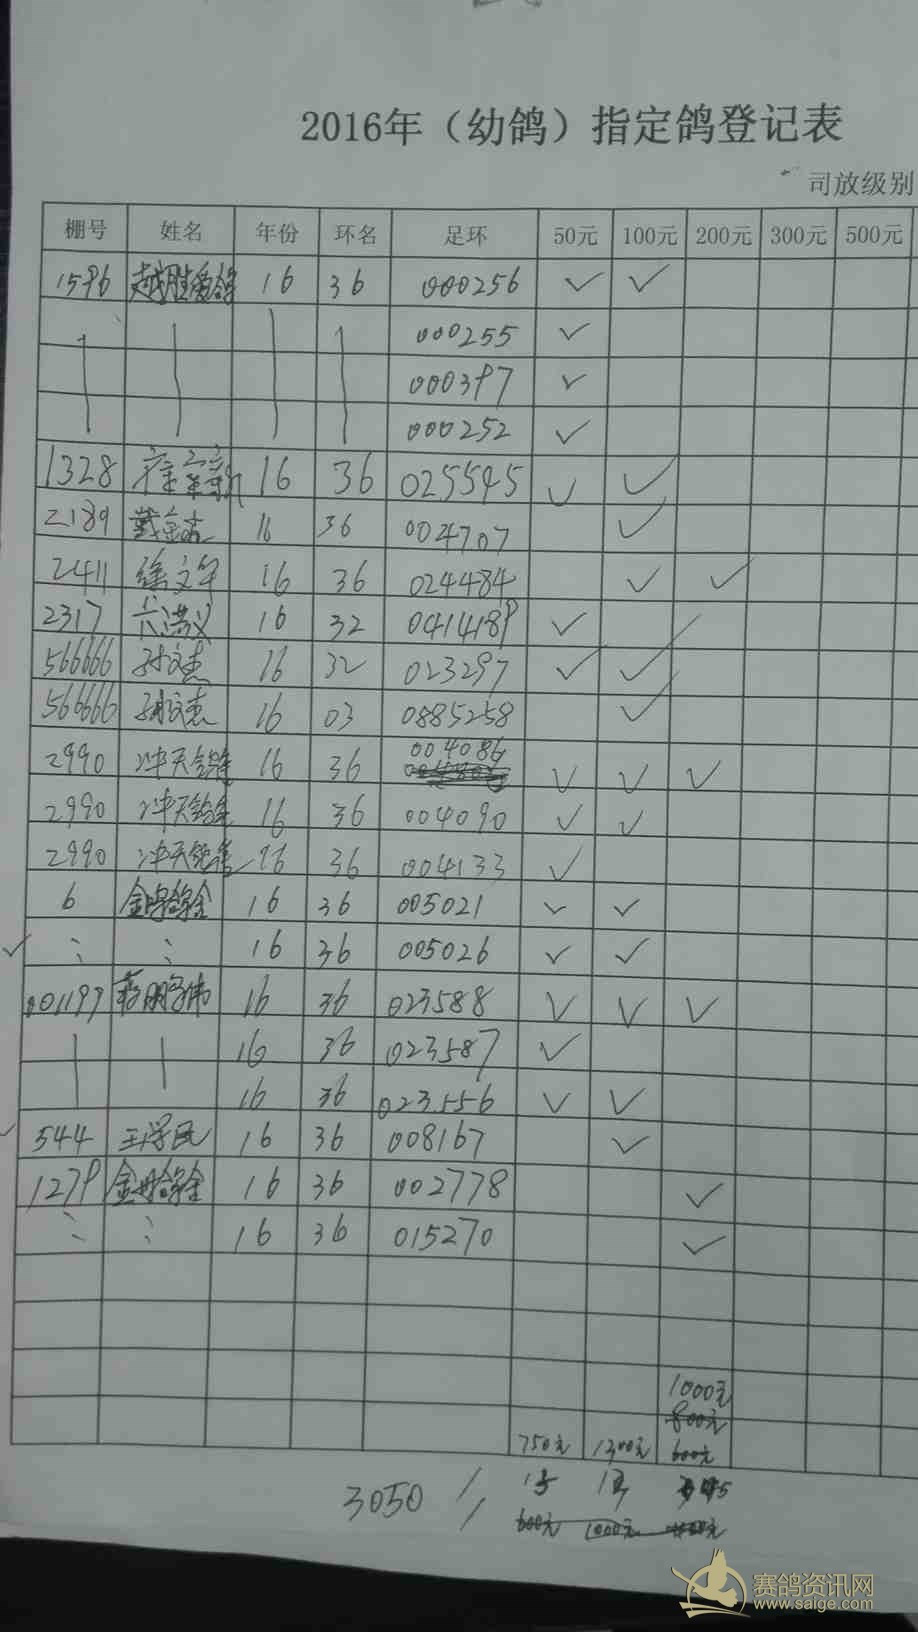 2016年（幼鸽）指定鸽登记表
司放级别
棚号 姓名 年份 环名 足环 50元 100元 200元 300元 500元
1596 越胜爱鸽 16 36 000256 ✓ ✓
000255 ✓
000397 ✓
000252 ✓
1328 16 36 025545 ✓ ✓
2189 戴金杰 16 36 004707 ✓
2411 徐文军 16 36 024484 ✓ ✓
2317 16 32 0414189 ✓
566666 孙文杰 16 32 023297 ✓ ✓
566666 孙文杰 16 03 0885258 ✓
2990 冲天鸽舍 16 36 004086 ✓ ✓ ✓
2990 冲天鸽舍 16 36 004090 ✓ ✓
2990 冲天鸽舍 16 36 004133 ✓
6 16 36 005021 ✓ ✓
✓ 16 36 005026 ✓ ✓
001199 16 36 023588 ✓ ✓ ✓
16 36 023587 ✓
16 36 023556 ✓ ✓
✓ 544 王学民 16 36 008167 ✓
1279 16 36 002778 ✓
16 36 015270 ✓
1000元
800元
750元 1300元 600元
3050 15 13 5
600元 1000元
赛鸽资讯网
www.saige.com